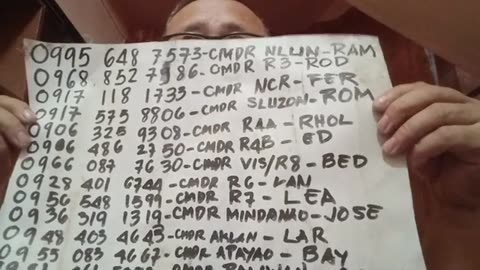 0995 648 7573-CMDR NLUN-RAM
0968 852 7986-CMDR R3-ROD
0917 118 1733-CMDR NCR-FER
0917 575 8806-CMDR SLUZON-ROM
0906 325 9308-CMDR R4A-RHOL
0906 486 2750-CMDR R4B-ED
0966 087 7630-CMDR VIS/R8-BED
0928 401 6744-CMDR R6-LAN
0956 548 1599-CMDR R7-LEA
0936 319 1319-CMDR MINDANAO-JOSE
0948 403 4643-CMDR AKLAN-LAR
0955 083 4667-CMDR APAYAO-BAY